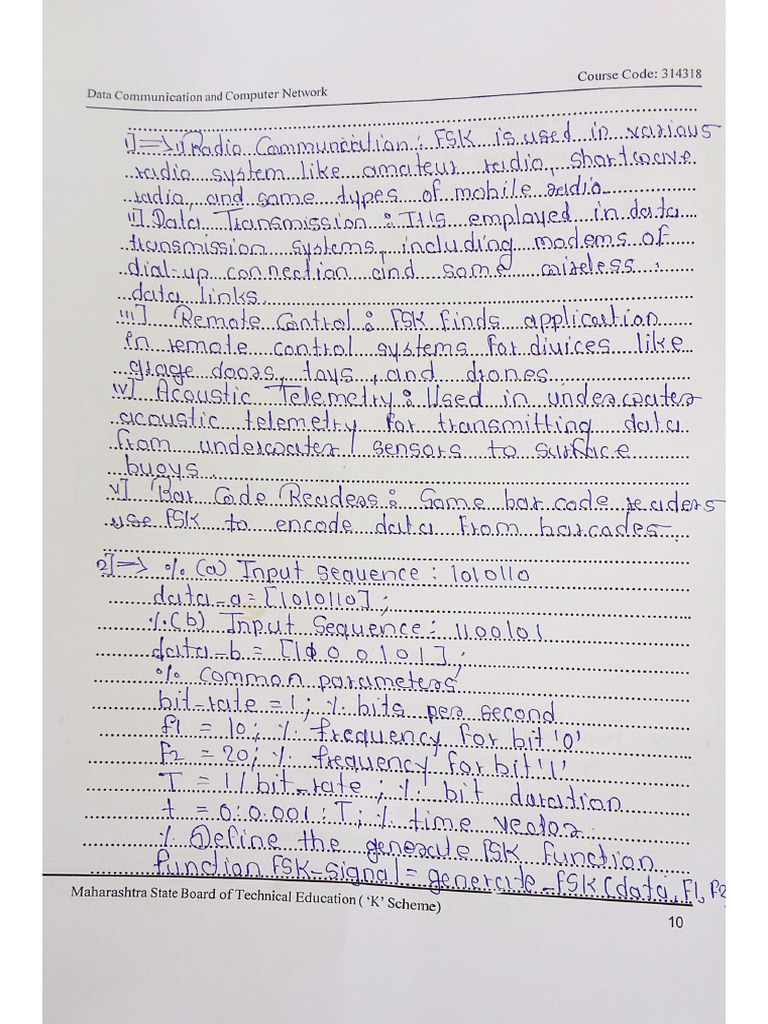 Course Code: 314318
Data Communication and Computer Network
1] ⇒ i) Radio Communication : FSK is used in various
radio system like amateur radio, shortwave
radio, and some types of mobile radio.
ii] Data Transmission : It is employed in data
transmission systems, including modems of
dial-up connection and some wireless
data links.
iii] Remote Control : FSK finds application
in remote control systems for divices like
grage doors, toys, and drones.
iv] Acoustic Telemetry : Used in underwater
acoustic telemetry for transmitting data
from underwater sensors to surface
buoys.
v] Bar Code Readers : Some bar code readers
use FSK to encode data from barcodes.
2] ⇒ % (a) Input sequence : 1010110
data_a = [1010110] ;
% (b) Input Sequence : 1100101
data_b = [1 0 0 0 1 0 1] ;
% Common parameters
bit_rate = 1 ; % bits per second
f1 = 10 ; % frequency for bit '0'
F2 = 20 ; % frequency for bit '1'
T = 1 / bit_rate ; % bit duration
t = 0:0.001 : T ; % time vector
% Define the generate FSK function
function FSK_signal = generate_FSK (data, F1, F2
Maharashtra State Board of Technical Education ( 'K' Scheme)
10